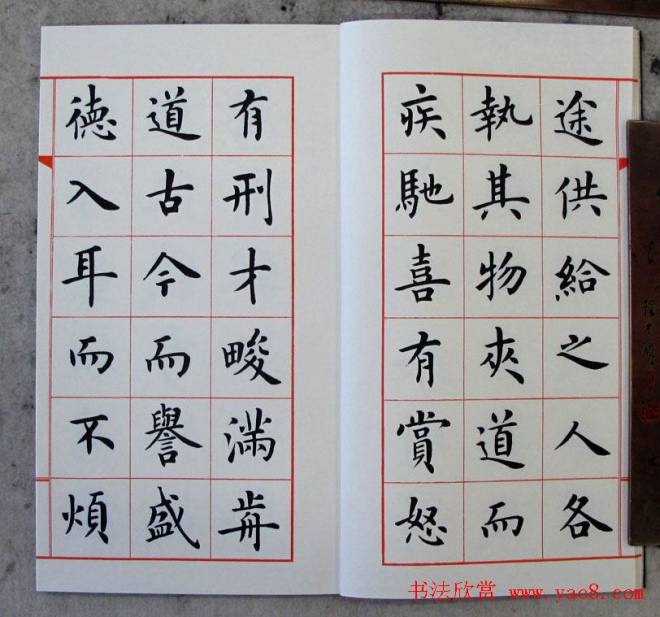 途供給之人各
執其物夾道而
疾馳喜有賞怒
有刑才畯滿歬
道古今而譽盛
德入耳而不煩
书法欣赏 www.yac8.com